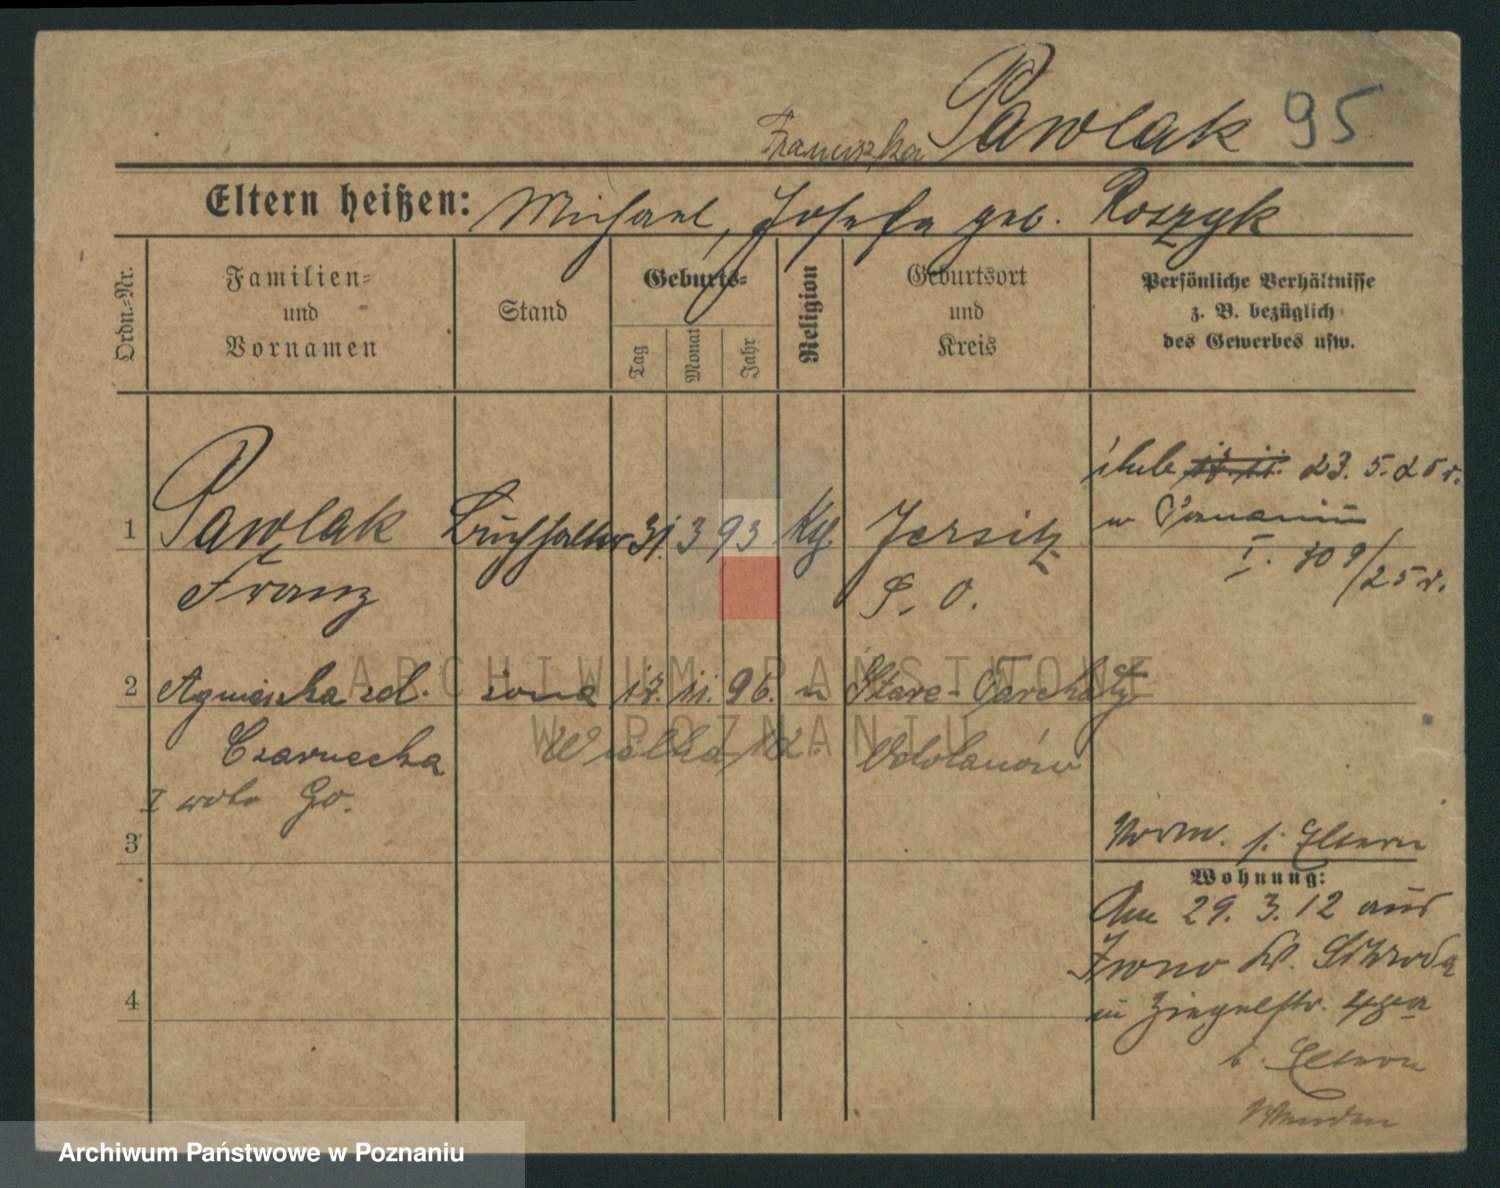 Franciszka Pawlak 95
Eltern heißen: Michael, Josefa geb. Roszyk
Ordn.-Nr.
Familien-
und
Vornamen
Stand
Geburts-
Tag
Monat
Jahr
Religion
Geburtsort
und
Kreis
Persönliche Verhältnisse
z. B. bezüglich
des Gewerbes usw.
1 Pawlak Buchhalter 31. 3 93 Kth. Jersitz
Franz P. O.
ślub 17. 11. 23. 5. 25 r.
w Poznaniu
I. 309/25 r.
2 Agnieszka zd. żona 17. 11. 96. " Stare-Tarchały
Czarnecka Wielka 12. Odolanów
I voto Go.
3
4
Vorm. s. Eltern
Wohnung:
Am 29. 3. 12 aus
Iwno Kr. Schroda
n Ziegelstr.
b. Eltern
ARCHIWUM PAŃSTWOWE
W POZNANIU
Archiwum Państwowe w Poznaniu